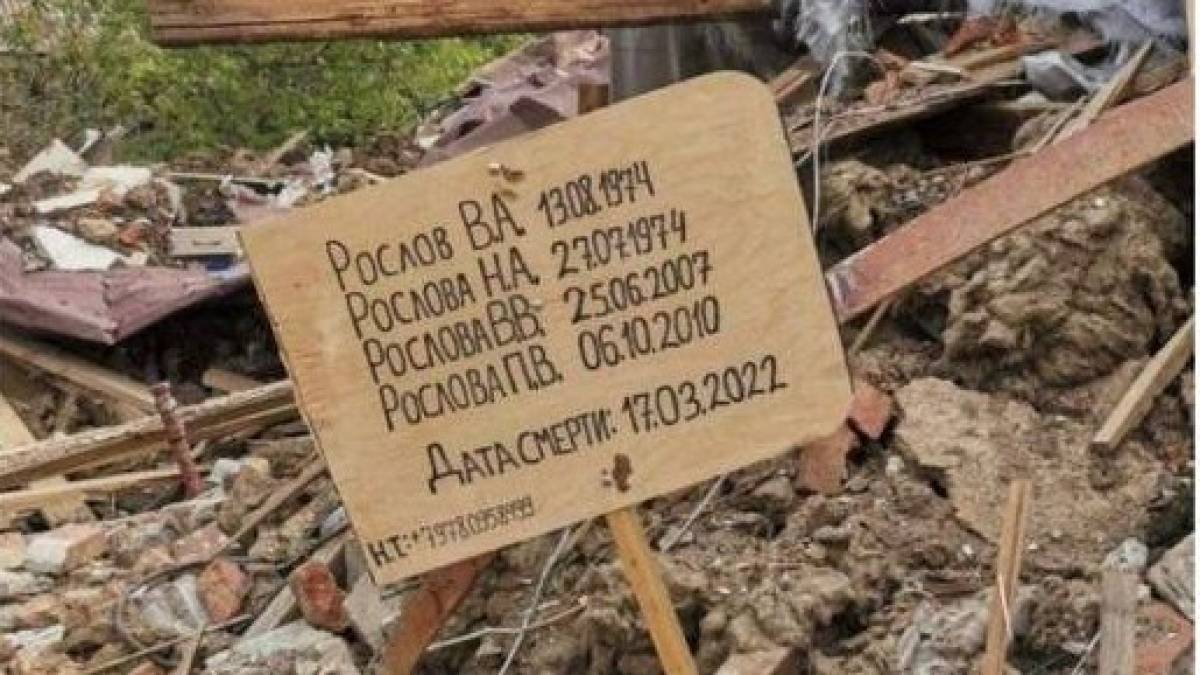 Рослов В.А. 13.08.1974
Рослова Н.А. 27.07.1974
Рослова В.В. 25.06.2007
Рослова П.В. 06.10.2010
Дата смерти: 17.03.2022
н.т.: +79780958999